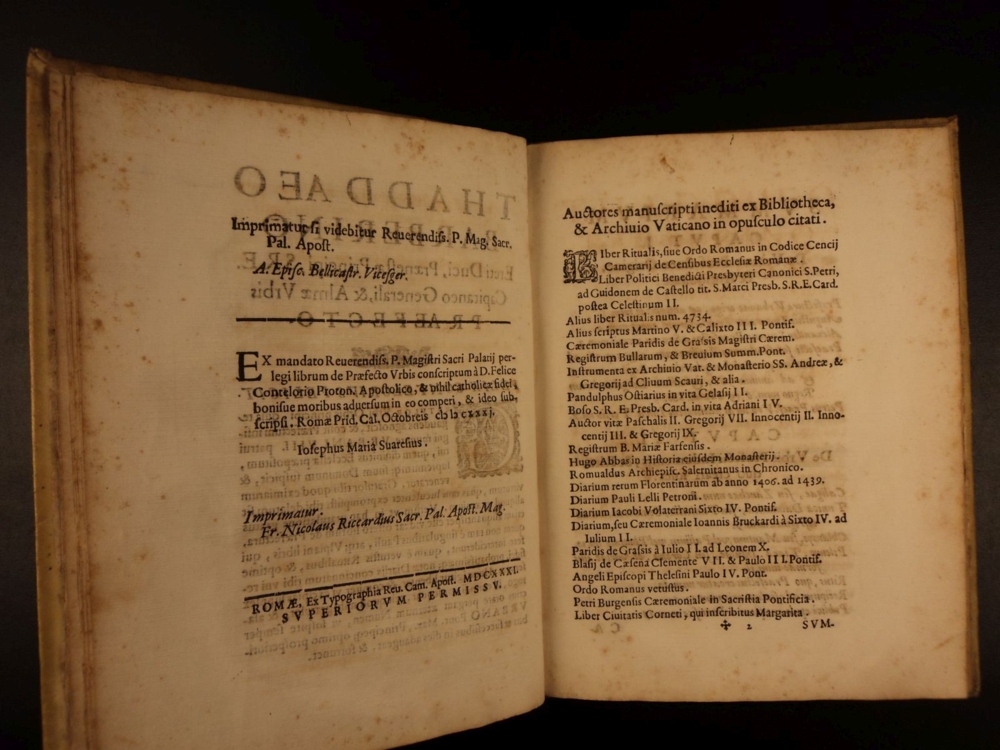 Imprimatur si videbitur Reuerendiss. P. Mag. Sacr.
Pal. Apost.
A. Episc. Bellicastr. Vicesger.
EX mandato Reuerendiss. P. Magistri Sacri Palatij per-
legi librum de Præfecto Vrbis conscriptum à D. Felice
Contelorio Proton. Apostolico, & nihil catholicæ fidei,
bonisue moribus aduersum in eo comperi, & ideo sub-
scripsi. Romæ Prid. Cal. Octobreis cIɔ Iɔ cxxxj.
Iosephus Maria Suaresius.
Imprimatur.
Fr. Nicolaus Riccardius Sacr. Pal. Apost. Mag.
ROMÆ, Ex Typographia Reu. Cam. Apost. MDCXXXI.
SVPERIORVM PERMISSV.
Auctores manuscripti inediti ex Bibliotheca,
& Archiuio Vaticano in opusculo citati.
LIber Ritualis, siue Ordo Romanus in Codice Cencij
Camerarij de Censibus Ecclesiæ Romanæ.
Liber Politici Benedicti Presbyteri Canonici S. Petri,
ad Guidonem de Castello tit. S. Marci Presb. S.R.E. Card.
postea Celestinum II.
Alius liber Ritualis num. 4734.
Alius scriptus Martino V. & Calixto III. Pontif.
Cæremoniale Paridis de Grassis Magistri Cærem.
Registrum Bullarum, & Breuium Summ. Pont.
Instrumenta ex Archiuio Vat. & Monasterio SS. Andreæ, &
Gregorij ad Cliuum Scauri, & alia.
Pandulphus Ostiarius in vita Gelasij II.
Boso S. R. E. Presb. Card. in vita Adriani IV.
Auctor vitæ Paschalis II. Gregorij VII. Innocentij II. Inno-
centij III. & Gregorij IX.
Registrum B. Mariæ Farfensis.
Hugo Abbas in Historia eiusdem Monasterij.
Romualdus Archiepisc. Salernitanus in Chronico.
Diarium rerum Florentinarum ab anno 1406. ad 1439.
Diarium Pauli Lelli Petroni.
Diarium Iacobi Volaterrani Sixto IV. Pontif.
Diarium, seu Cæremoniale Ioannis Bruckardi à Sixto IV. ad
Iulium II.
Paridis de Grassis à Iulio II. ad Leonem X.
Blasij de Cæsena Clemente VII. & Paulo III. Pontif.
Angeli Episcopi Thelesini Paulo IV. Pont.
Ordo Romanus vetustus.
Petri Burgensis Cæremoniale in Sacristia Pontificia.
Liber Ciuitatis Corneti, qui inscribitus Margarita.
✠ 2 SVM-